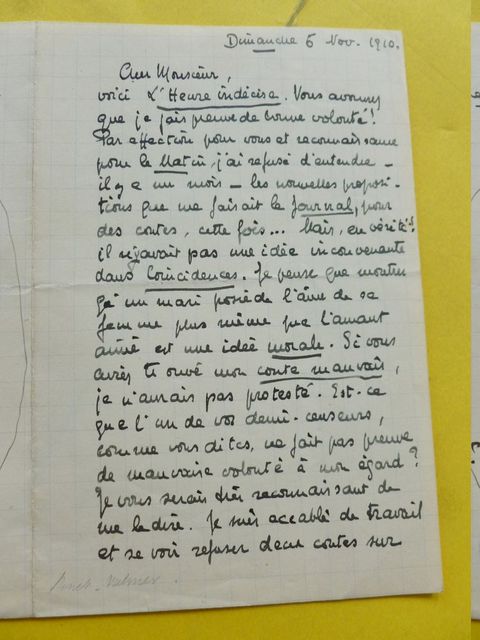 Dimanche 6 Nov. 1910.
Cher Monsieur,
voici L'Heure indécise. Vous avouerez
que je fais preuve de bonne volonté !
Par affection pour vous et reconnaissance
pour le Matin, j'ai refusé d'entendre –
il y a un mois – les nouvelles proposi-
tions que me faisait le Journal, pour
des contes, cette fois... Mais, en vérité !
il n'y avait pas une idée inconvenante
dans Coïncidences. Je pense que montrer
qu'un mari possède l'âme de sa
femme plus même que l'amant
aimé est une idée morale. Si vous
aviez trouvé mon conte mauvais,
je n'aurais pas protesté. Est-ce
que l'un de vos demi-censeurs,
comme vous dites, ne fait pas preuve
de mauvaise volonté à mon égard ?
Je vous serais très reconnaissant de
me le dire. Je suis accablé de travail
et se voir refuser deux contes sur
Binet-Valmer.